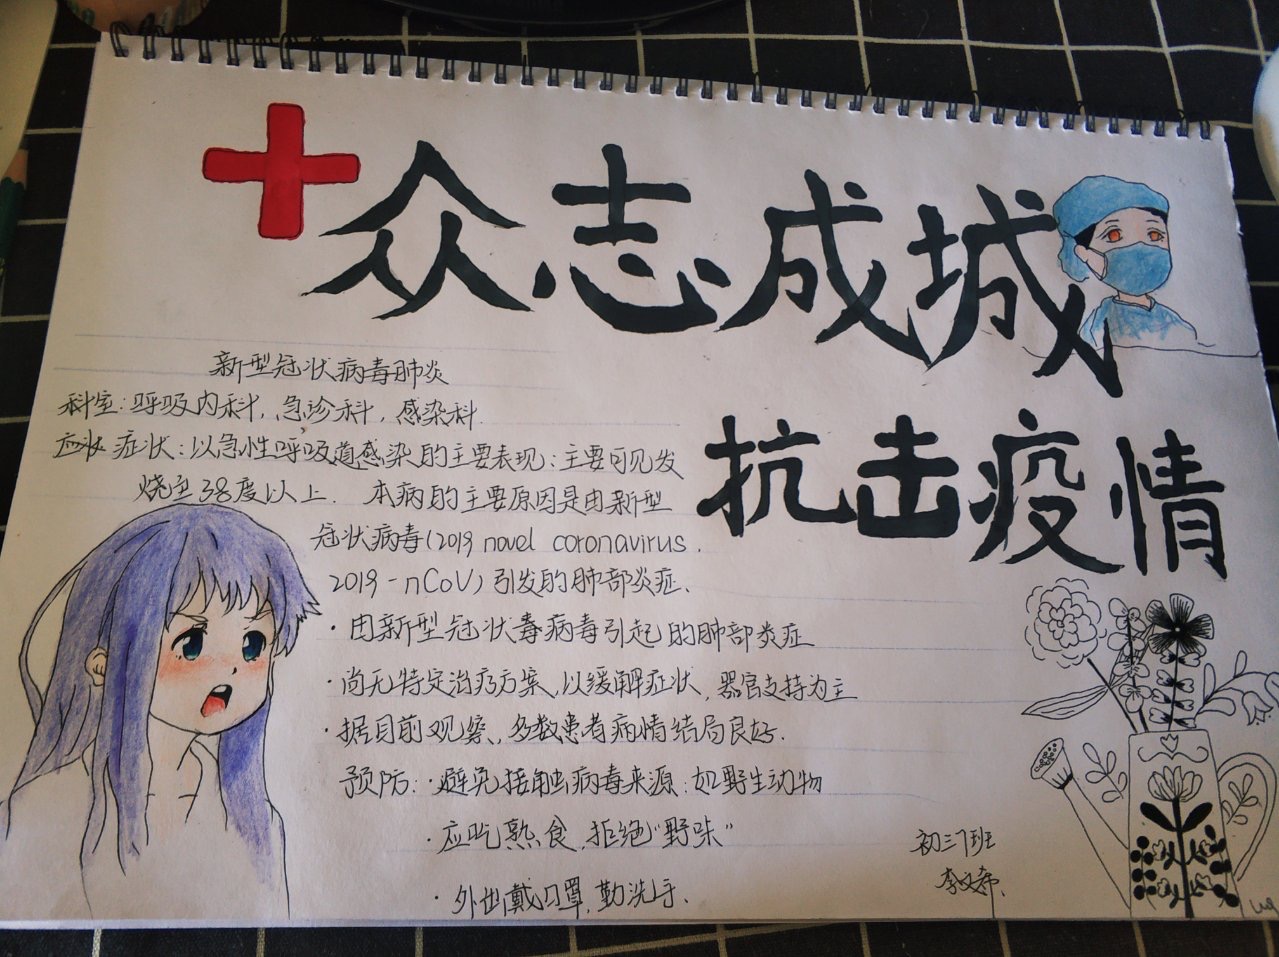 众志成城
抗击疫情
新型冠状病毒肺炎
科室：呼吸内科，急诊科，感染科
症状：以急性呼吸道感染的主要表现：主要可见发
烧至38度以上．本病的主要原因是由新型
冠状病毒(2019 novel coronavirus．
2019-nCoV)引发的肺部炎症、
·由新型冠状毒病毒引起的肺部炎症
·尚无特定治疗方案，以缓解症状，器官支持为主
·据目前观察，多数患者病情结局良好．
预防：·避免接触病毒来源：如野生动物
·应吃熟食，拒绝“野味”
·外出戴口罩，勤洗手、
初三7班